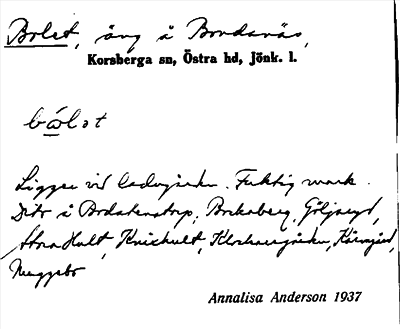 Bolet, äng å Bondanäs,
Korsberga sn, Östra hd, Jönk. l.
bólet
Ligger vid ladugården. Fuktig mark.
Dito å Bodatorp, Brokaberg, Göljaryd,
Stora Hult, Knishult, Klockaregården, Kärngärd,
Muggebo
Annalisa Anderson 1937